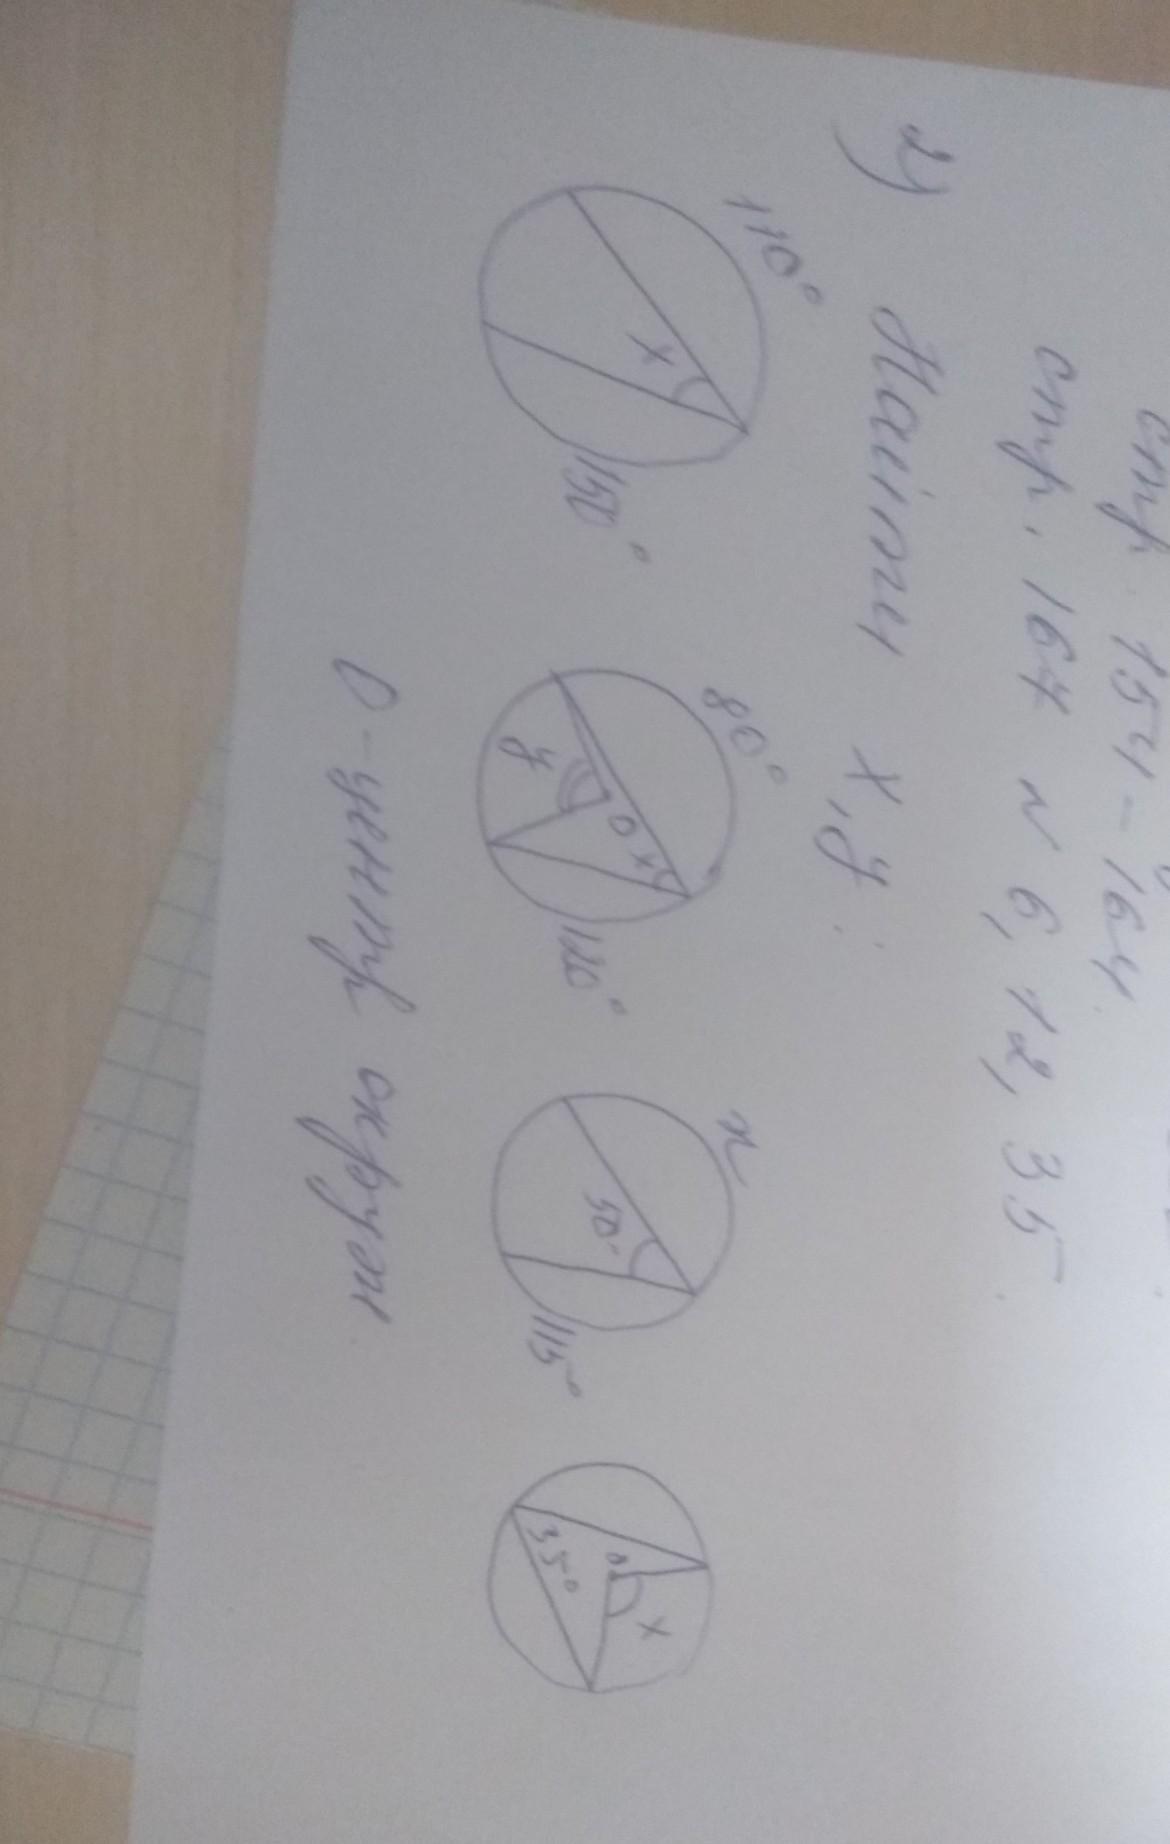 стр. 154 - 164.
стр. 164 № 6, 12, 35.
2) Найти x, y:
110°
x
150°
80°
O
x
y
120°
x
50°
115°
O
x
35°
O - центр окружн.